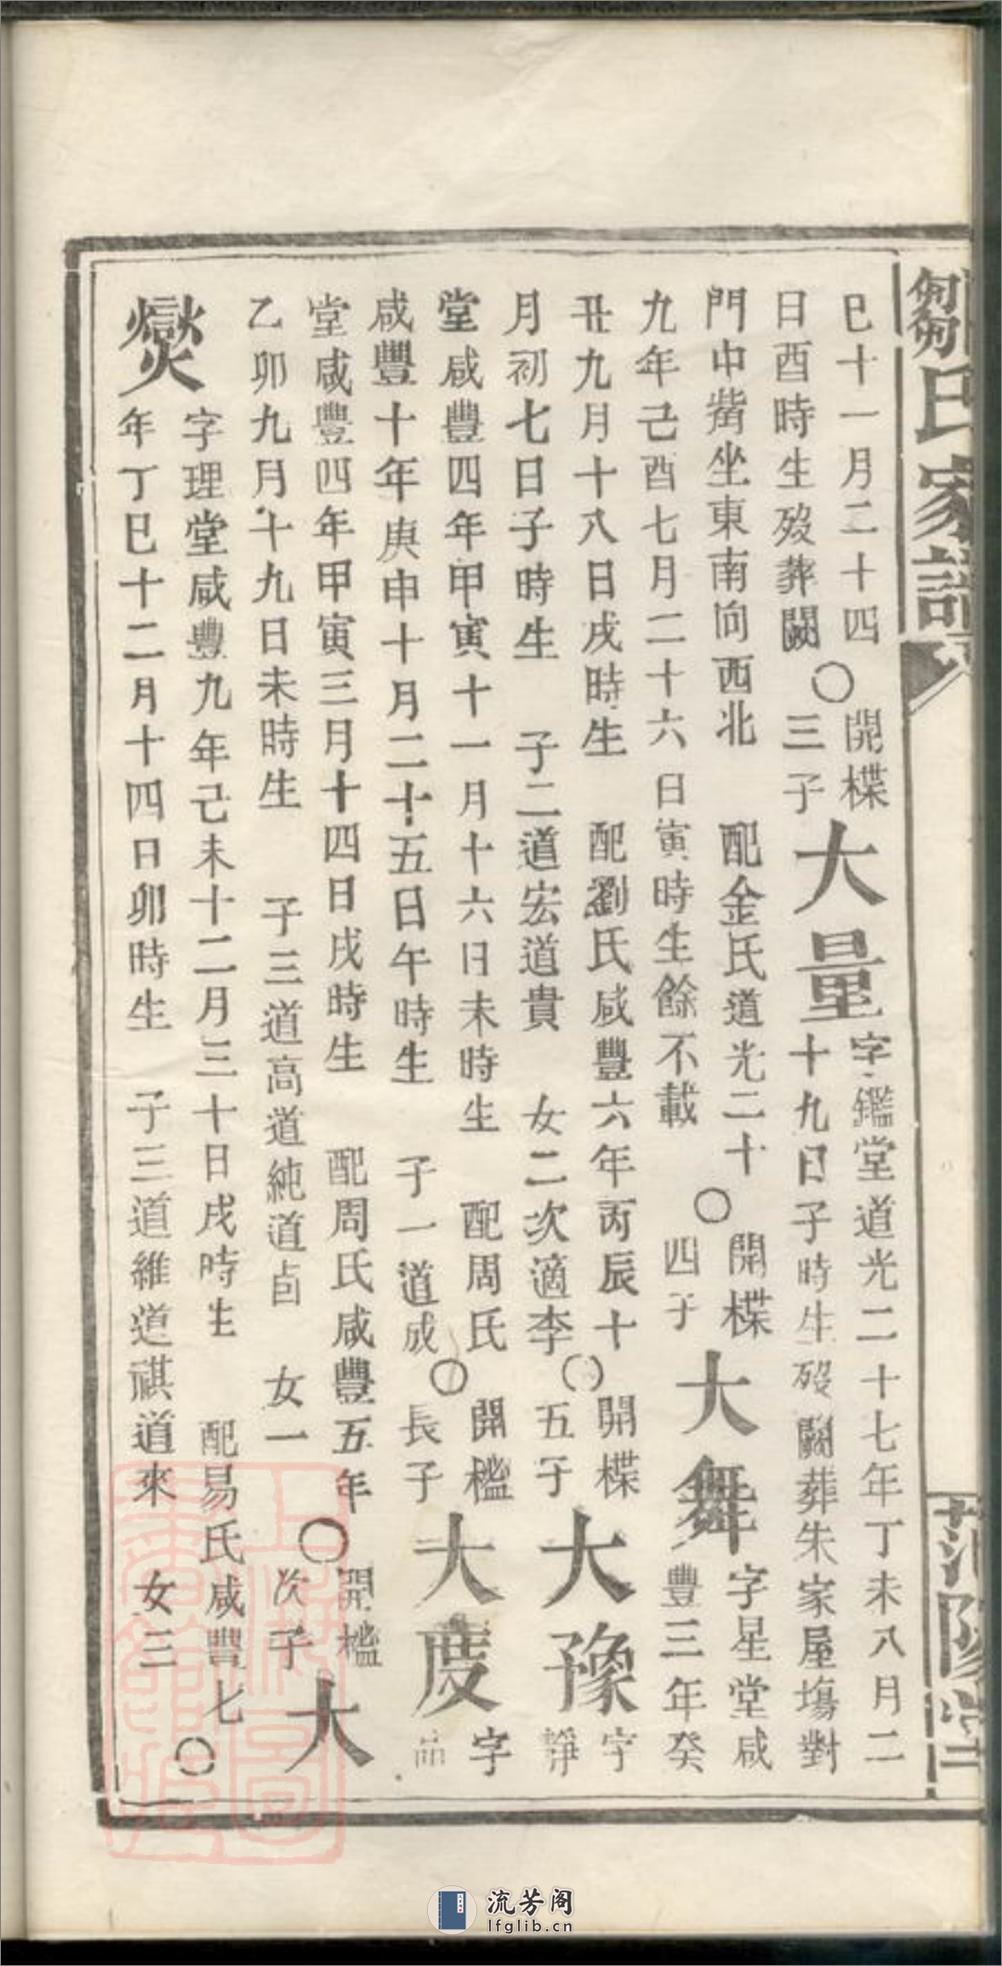 鄒氏家譜
巳十一月二十四
日酉時生歿葬闕
〇
開楪
三子
大量
字鑑堂道光二十七年丁未八月二
十九日子時生歿闕葬朱家屋塲對
門中嘴坐東南向西北 配金氏道光二十
九年己酉七月二十六日寅時生餘不載
〇
開楪
四子
大舞
字星堂咸
豐三年癸
丑九月十八日戌時生 配劉氏咸豐六年丙辰十
月初七日子時生 子二道宏道貴 女二次適李
〇
開楪
五子
大豫
字
靜
堂咸豐四年甲寅十一月十六日未時生 配周氏
咸豐十年庚申十月二十五日午時生 子一道成
〇
開檻
長子
大度
字
堂咸豐四年甲寅三月十四日戌時生 配周氏咸豐五年
乙卯九月十九日未時生 子三道高道純道卣 女一
〇
開檻
次子
大
爕
字理堂咸豐九年己未十二月三十日戌時生 配易氏咸豐七
年丁巳十二月十四日卯時生 子三道維道祺道來 女三
〇
范陽堂
流芳阁
lfglib.cn